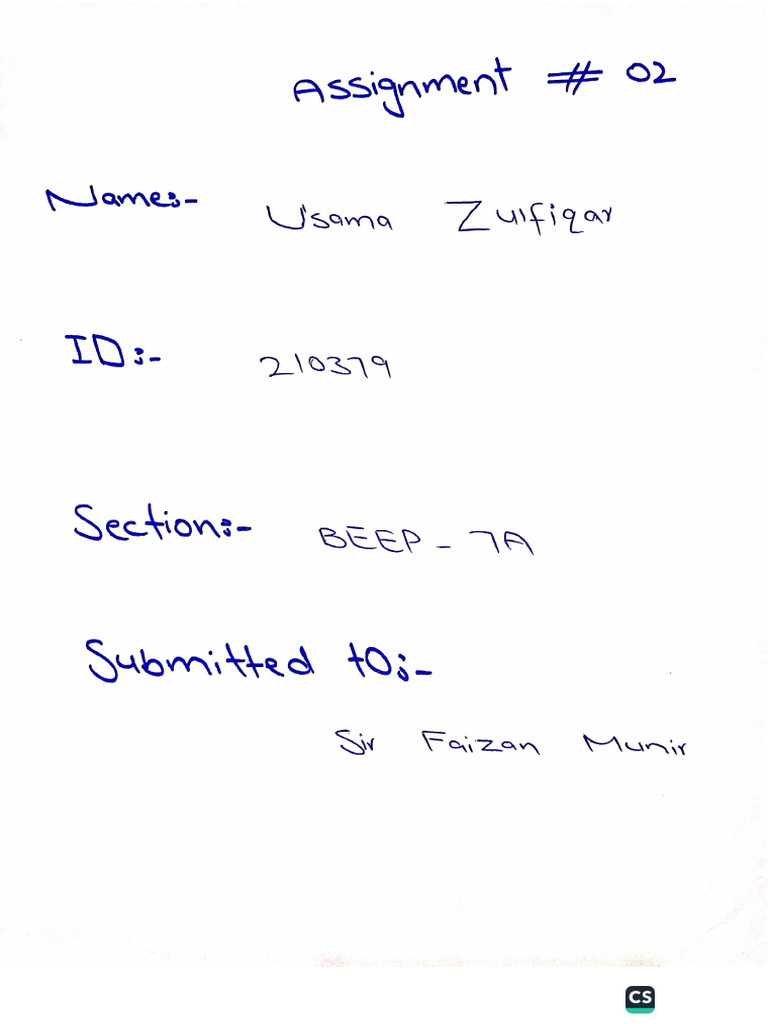 Assignment # 02
Name:- Usama Zulfiqar
ID:- 210379
Section:- BEEP - 7A
Submitted to:-
Sir Faizan Munir
CS